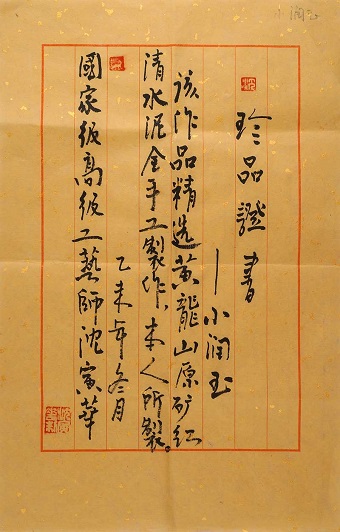 小润玉
珍品證書
—小润玉
该作品精选黄龍山原矿红
清水泥全手工製作，本人所製。
乙未年冬月
國家级高级工藝師沈寅華